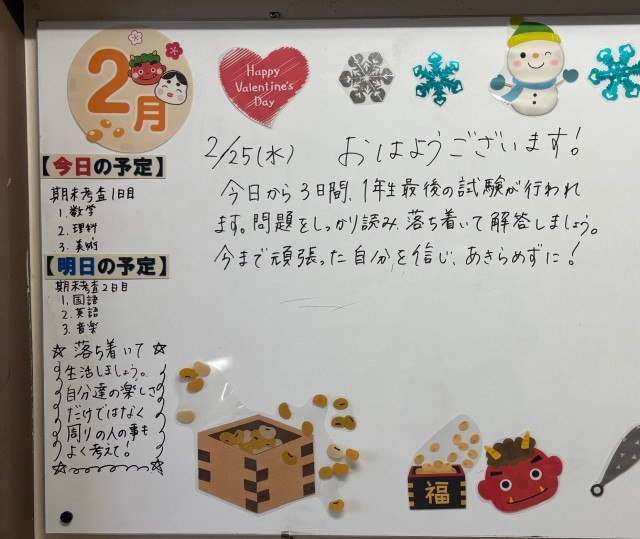 2月
Happy
Valentine's
Day
2/25(水) おはようございます!
今日から3日間、1年生最後の試験が行われ
ます。問題をしっかり読み、落ち着いて解答しましょう。
今まで頑張った自分を信じ、あきらめずに!
【今日の予定】
期末考査1日目
1. 数学
2. 理科
3. 美術
【明日の予定】
期末考査2日目
1. 国語
2. 英語
3. 音楽
☆落ち着いて☆
生活しましょう。
自分達の楽しさ
だけではなく
周りの人の事も
よく考えて!
福